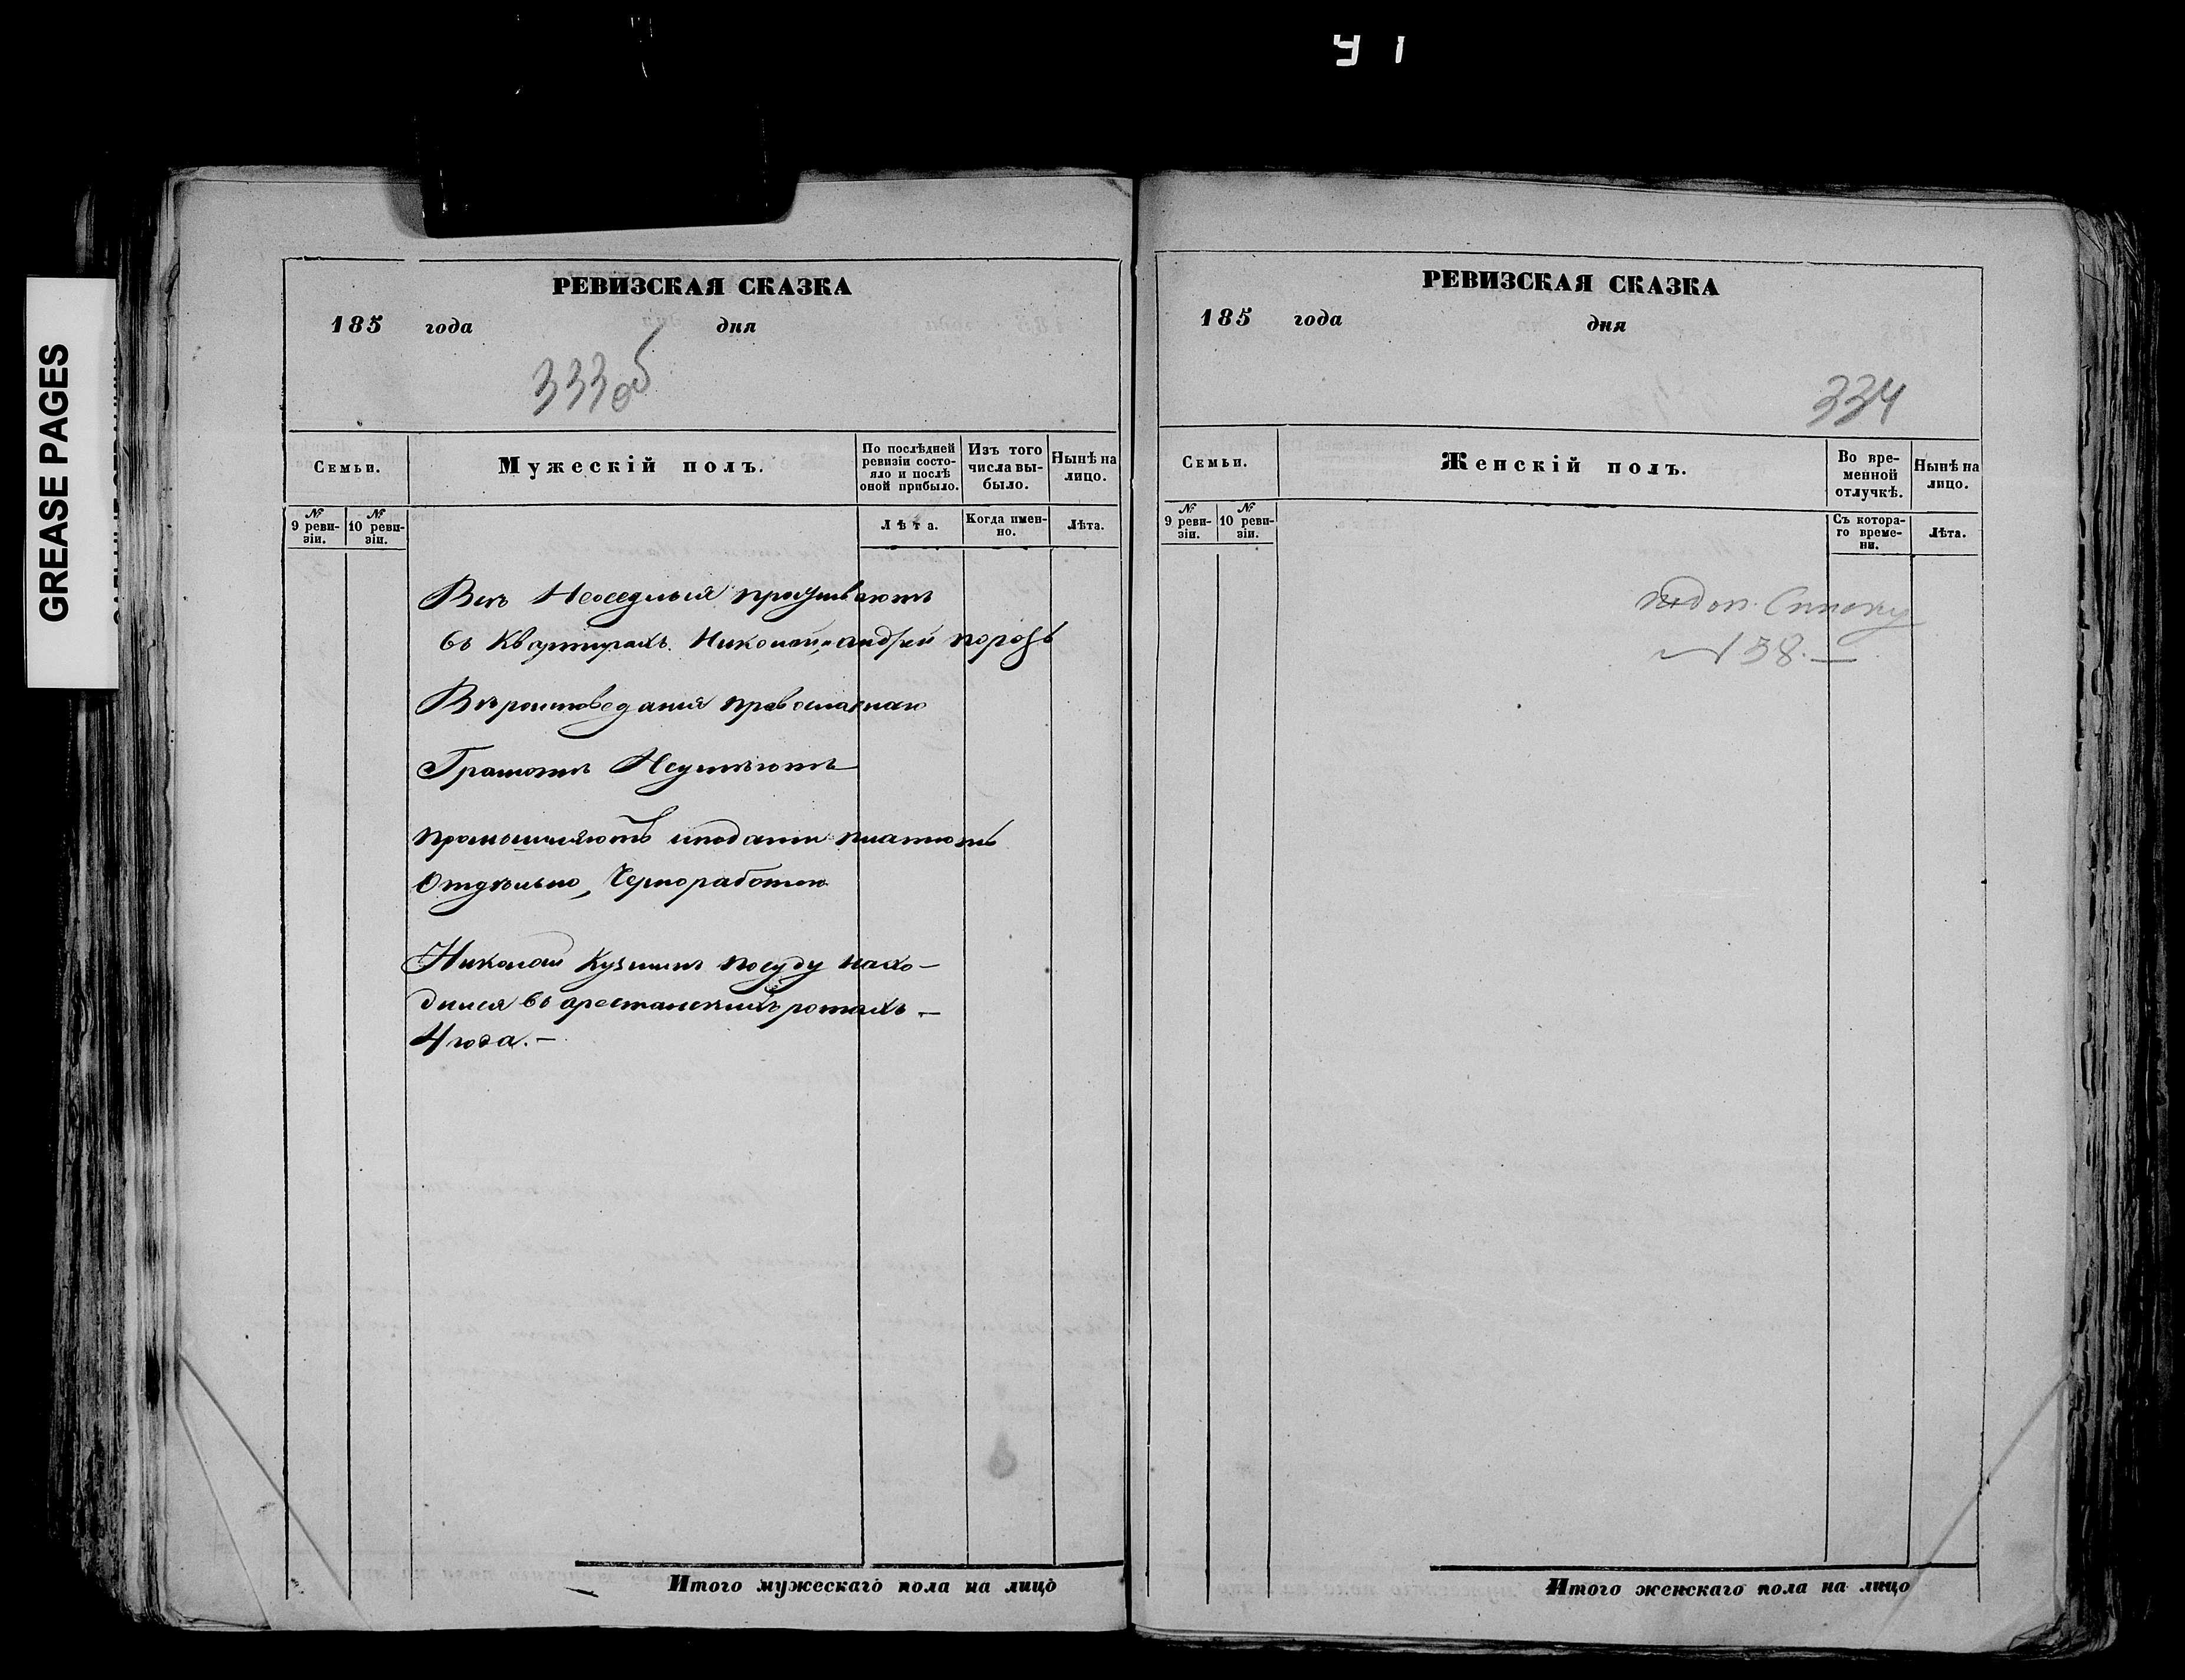 У 1
GREASE PAGES
РЕВИЗСКАЯ СКАЗКА
185 года дня
333об
Семьи.
Мужескій полъ.
По послѣдней ревизіи состо-
яло и послѣ оной прибыло.
Изъ того числа вы-
было.
Нынѣ на лицо.
№ 9 реви-
зіи.
№ 10 реви-
зіи.
Лѣта.
Когда имен-
но.
Лѣта.
Всѣ Неоседлыя проживаютъ
въ Квартирахъ. Николай, Андрей порозь
Вѣроисповедания православнаго
Грамотѣ Неумѣютъ
промышляютъ иподати платютъ
Отдѣльно, Черноработою
Николай Кузминъ посуду нахо-
дился въ арестанскихъ ротахъ —
4 года. —
Итого мужескаго пола на лицо
РЕВИЗСКАЯ СКАЗКА
185 года дня
334
Семьи.
Женскій полъ.
Во вре-
менной
отлучкѣ.
Нынѣ на
лицо.
№ 9 реви-
зіи.
№ 10 реви-
зіи.
Съ котора-
го време-
ни.
Лѣта.
доп. Списку
№ 38. —
Итого женскаго пола на лицо